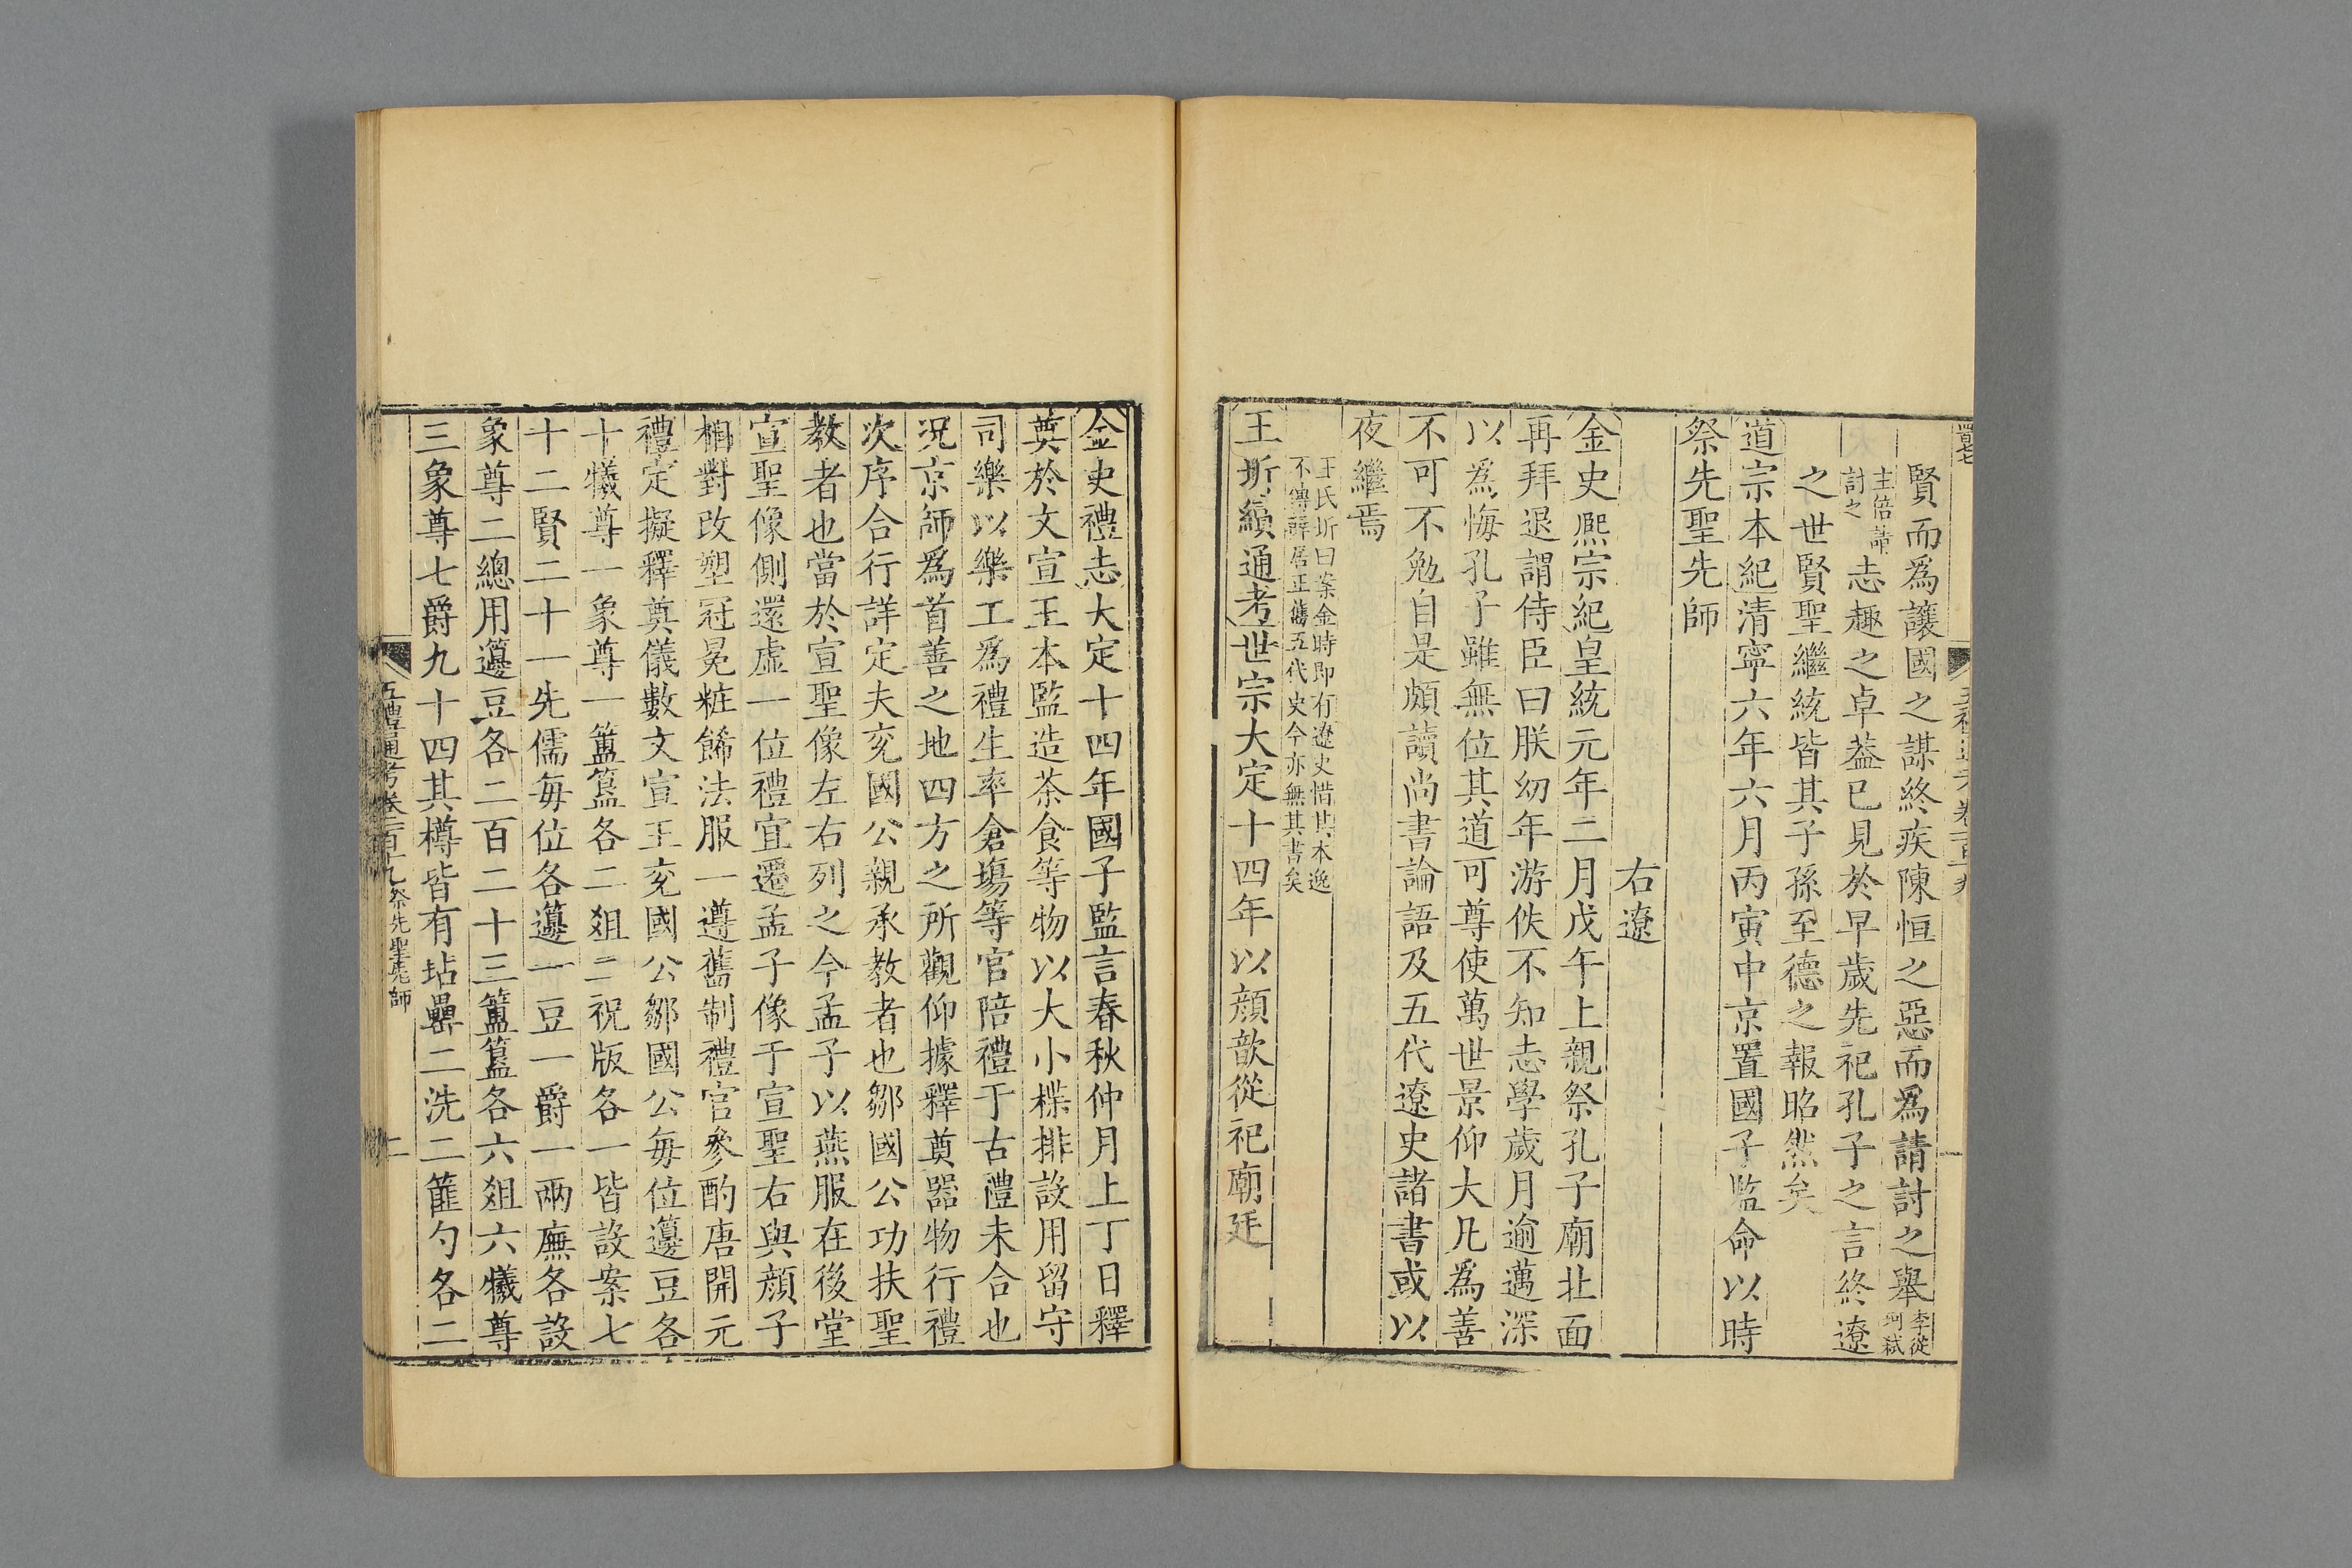 賢而爲讓國之謀終疾陳恒之惡而爲請討之舉李從珂弑
主倍請討之志趣之卓葢已見於早歲先祀孔子之言終遼
之世賢聖繼統皆其子孫至德之報昭然矣
道宗本紀清寧六年六月丙寅中京置國子監命以時
祭先聖先師
右遼
金史熙宗紀皇統元年二月戊午上親祭孔子廟北面
再拜退謂侍臣曰朕幼年游佚不知志學歲月逾邁深
以爲悔孔子雖無位其道可尊使萬世景仰大凡爲善
不可不勉自是頗讀尚書論語及五代遼史諸書或以
夜繼焉
王氏圻曰案金時即有遼史惜其本逸
不傳薛居正舊五代史今亦無其書矣
王圻續通考世宗大定十四年以顔歆從祀廟廷
金史禮志大定十四年國子監言春秋仲月上丁日釋
奠於文宣王本監造茶食等物以大小楪排設用留守
司樂以樂工爲禮生率倉塲等官陪禮于古禮未合也
况京師爲首善之地四方之所觀仰據釋奠器物行禮
次序合行詳定夫兖國公親承教者也鄒國公功扶聖
教者也當於宣聖像左右列之今孟子以燕服在後堂
宣聖像側還虚一位禮宜遷孟子像于宣聖右與顔子
相對改塑冠冕粧餙法服一遵舊制禮官參酌唐開元
禮定擬釋奠儀數文宣王兖國公鄒國公每位籩豆各
十犧尊一象尊一簠簋各二爼二祝版各一皆設案七
十二賢二十一先儒每位各籩一豆一爵一兩廡各設
象尊二總用籩豆各二百二十三簠簋各六爼六犧尊
三象尊七爵九十四其樽皆有坫罍二洗二篚勺各二
五禮通考卷一百十九 祭先聖先師 二